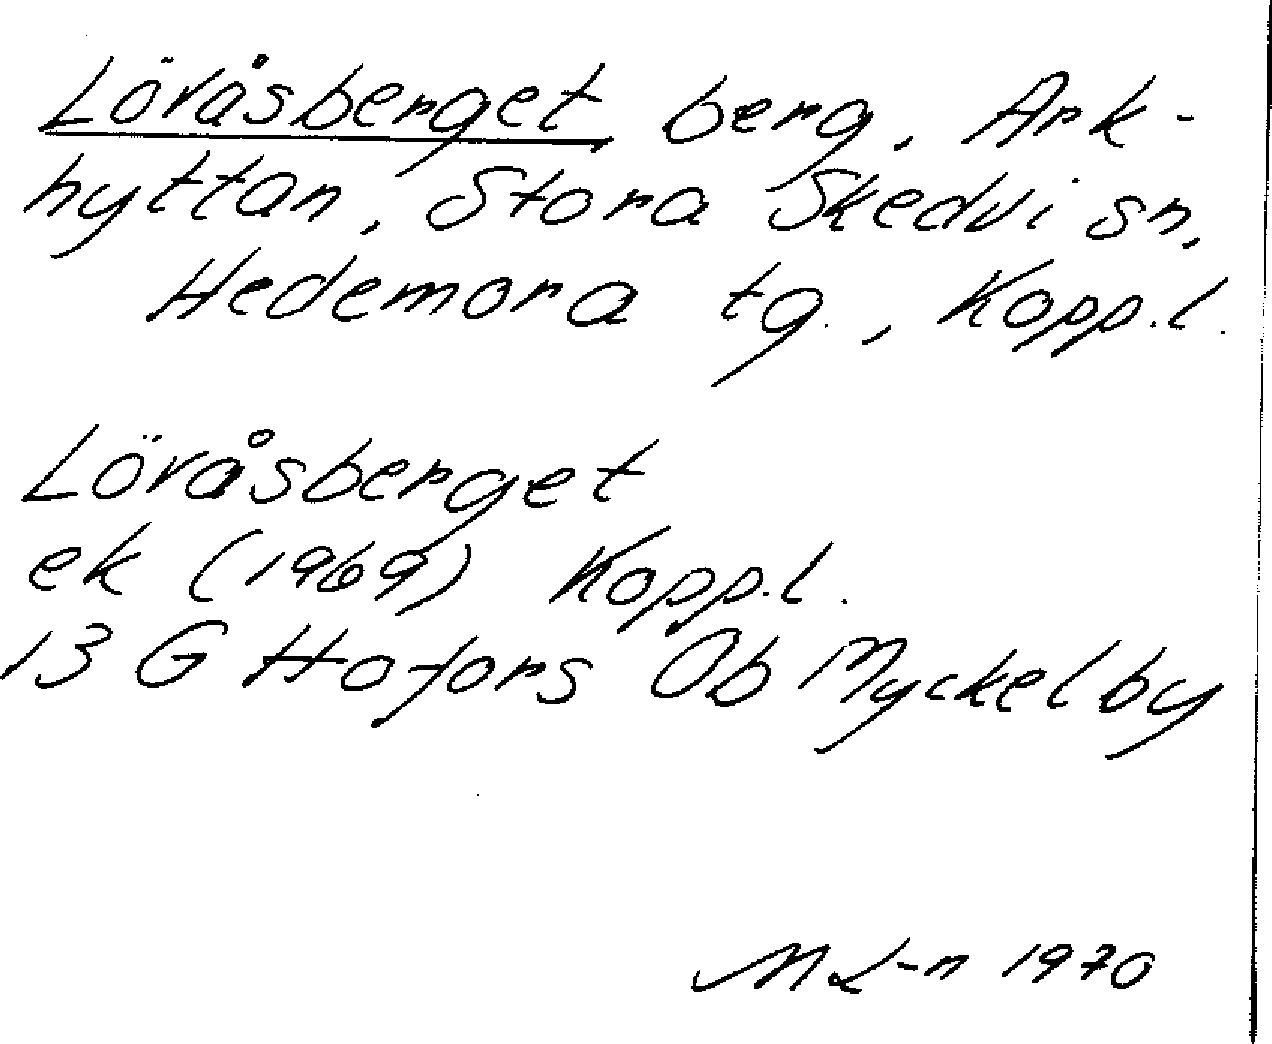 Lövåsberget berg, Ark-
hyttan, Stora Skedvi sn,
Hedemora tg., Kopp.l.
Lövåsberget
ek (1969) Kopp.l.
13 G Hofors Ob Myckelby
M L-n 1970